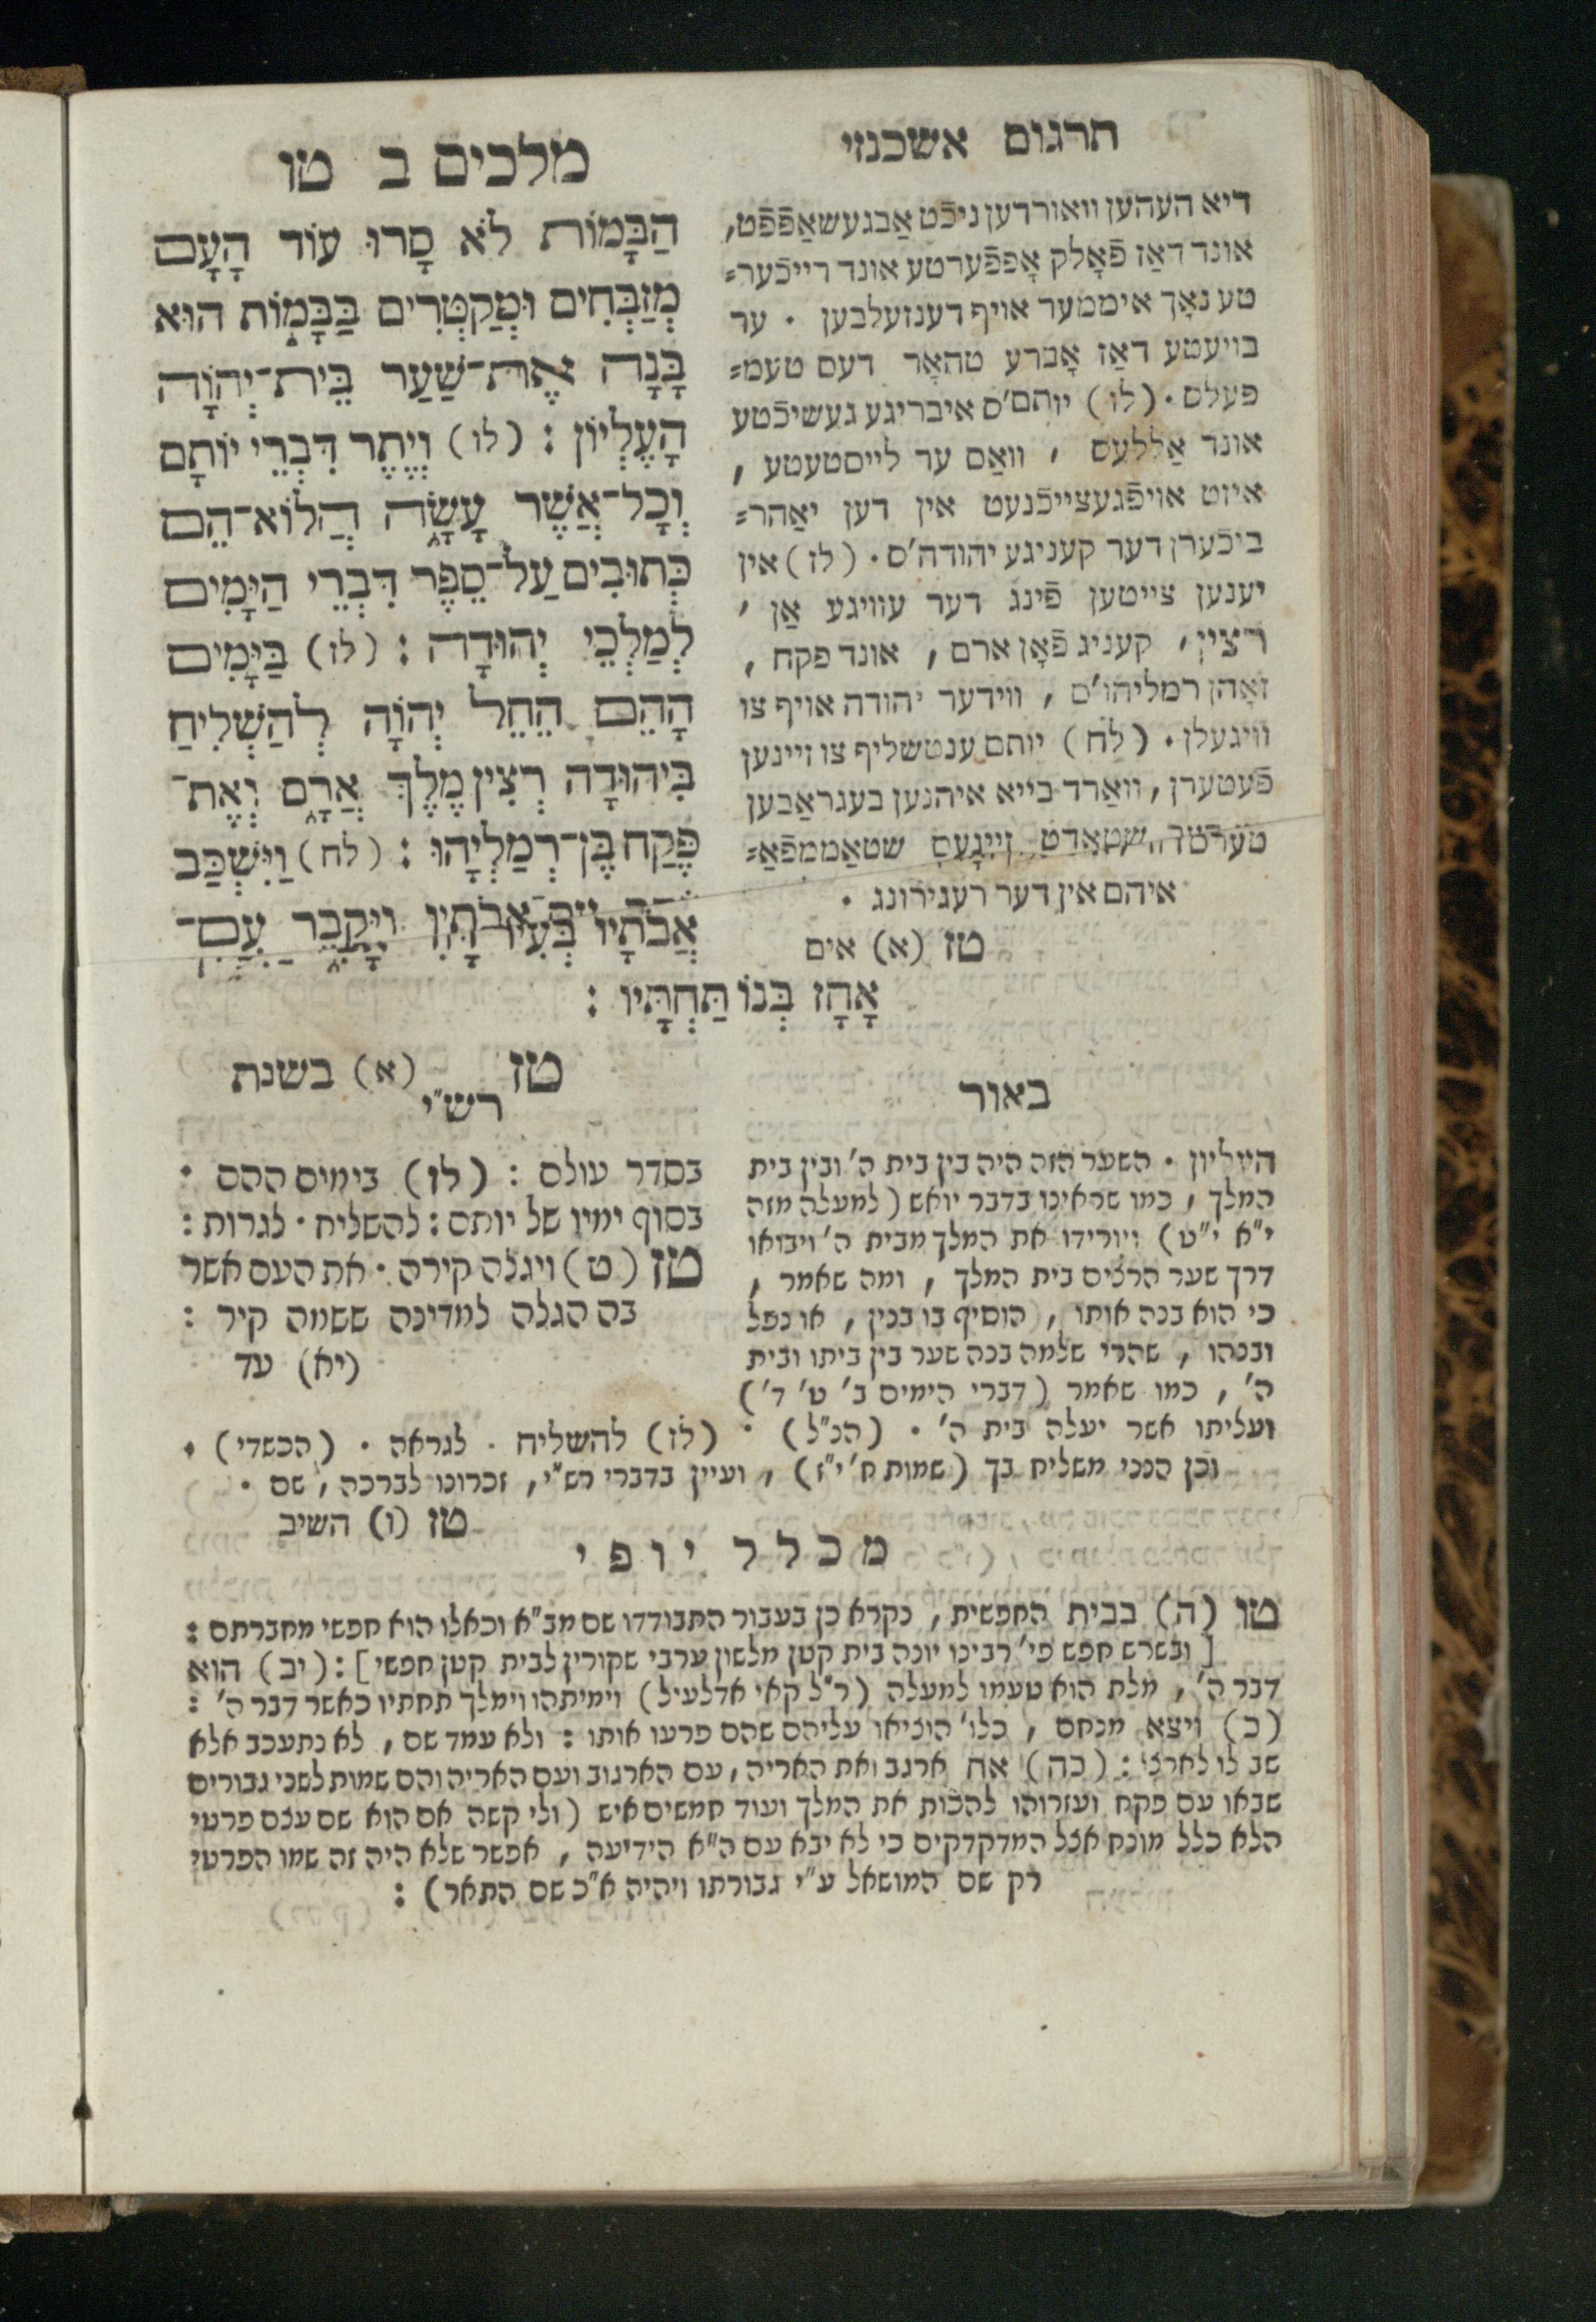 תרגום אשכנזי
דיא העהען וואורדען ניכֿט אַבגעשאַפֿפֿט,
אונד דאַז פֿאָלק אָפפֿערטע אונד רייכֿער=
טע נאָך איממער אויף דענזעלבען · ער
בויעטע דאַז אָברע טהאָר דעם טעמ=
פעלס· (לו) יותם'ס איבריגע געשיכֿטע
אונד אַללעס , וואַס ער לייסטעטע ,
איזט אויפֿגעצייכֿנעט אין דען יאַהר=
ביכֿערן דער קעניגע יהודה'ס· (לז) אין
יענען צייטען פֿינג דער עוויגע אַן ,
רצין, קעניג פֿאָן ארם, אונד פקח,
זאָהן רמליהו'ס, ווידער יהודה אויף צו
וויגעלן· (לח) יותם ענטשליף צו זיינען
פֿעטערן, וואַרד בייא איהנען בעגראַבען
שטאַדט זיינעס שטאַממפֿאַ=
איהם אין דער רעגירונג ·
טז (א) אים
מלכים ב טו
הַבָּמוֹת לֹא סָרוּ עוֹד הָעָם
מְזַבְּחִים וּמְקַטְּרִים בַּבָּמוֹת הוּא
בָּנָה אֶת־שַׁעַר בֵּית־יְהוָֹה
הָעֶלְיוֹן : (לו) וְיֶתֶר דִּבְרֵי יוֹתָם
וְכָל־אֲשֶׁר עָשָׂה הֲלוֹא־הֵם
כְּתוּבִים עַל־סֵפֶר דִּבְרֵי הַיָּמִים
לְמַלְכֵי יְהוּדָה : (לז) בַּיָּמִים
הָהֵם הֵחֵל יְהוָֹה לְהַשְׁלִיחַ
בִּיהוּדָה רְצִין מֶלֶךְ אֲרָם וְאֶת־
פֶּקַח בֶּן־רְמַלְיָהוּ : (לח) וַיִּשְׁכַּב
אֲבֹתָיו וַיִּקָּבֵר עִם־
אָחָז בְּנוֹ תַּחְתָּיו :
טז (א) בשנת
באור
העליון · השער הזה היה בין בית ה' ובין בית
המלך, כמו שראינו בדבר יואש (למעלה מזה
י"א י"ט) ויורידו את המלך מבית ה' ויבואו
דרך שער הרצים בית המלך, ומה שאמר,
כי הוא בנה אותו, הוסיף בו בנין, או נפל
ובנהו, שהרי שלמה בנה שער בין ביתו ובית
ה', כמו שאמר (דברי הימים ב' ט' ד')
ועליתו אשר יעלה בית ה' · (הנ"ל) · (לז) להשליח · לגראה · (הכשדי) ·
וכן הנני משליח בך (שמות ח' י"ז), ועיין בדברי רש"י, זכרונו לברכה, שם ·
טז (ו) השיב
רש"י
בסדר עולם : (לז) בימים ההם ·
בסוף ימיו של יותם : להשליח · לגרות :
טז (ט) ויגלה קירה · את העם אשר
בה הגלה למדינה ששמה קיר :
(יא) עד
מכלל יופי
טו (ה) בבית החפשית, נקרא כן בעבור התבודדו שם מב"א וכאלו הוא חפשי מחברתם :
[ובשרש חפש פי' רבינו יונה בית קטן מלשון ערבי שקורין לבית קטן חפשי] : (יב) הוא
דבר ה', מלת הוא טעמו למעלה (ר"ל קאי אדלעיל) וימיתהו וימלך תחתיו כאשר דבר ה' :
(כ) ויצא מנחם, כלו' הוציאו עליהם שהם פרעו אותו : ולא עמד שם, לא נתעכב אלא
שב לו לארצו : (כה) את ארגב ואת האריה, עם הארגוב ועם האריה והם שמות לשני גבורים
שבאו עם פקח ועזרוהו להכות את המלך ועוד חמשים איש (ולי קשה אם הוא שם עצם פרטי
הלא כלל מונח אצל המדקדקים כי לא יבא עם ה"א הידיעה, אפשר שלא היה זה שמו הפרטי
רק שם המושאל ע"י גבורתו ויהיה א"כ שם התאר) :